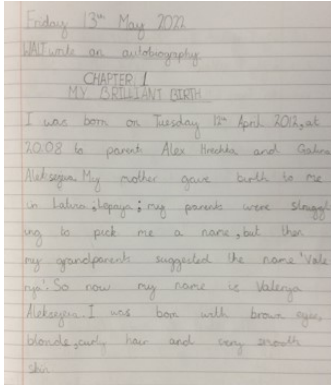 Friday 13th May 2022
WALT write an autobiography
CHAPTER 1
MY BRILLIANT BIRTH
I was born on Tuesday 12th April 2012, at
20:08 to parents Alex and Galina
My mother gave birth to me
in Latvia, Liepaja; my parents were struggl
ing to pick me a name, but then
my grandparents suggested the name 'Vale
rya'. So now my name is Valerya
Alekseyeva. I was born with brown eyes,
blonde, curly hair and very smooth
skin